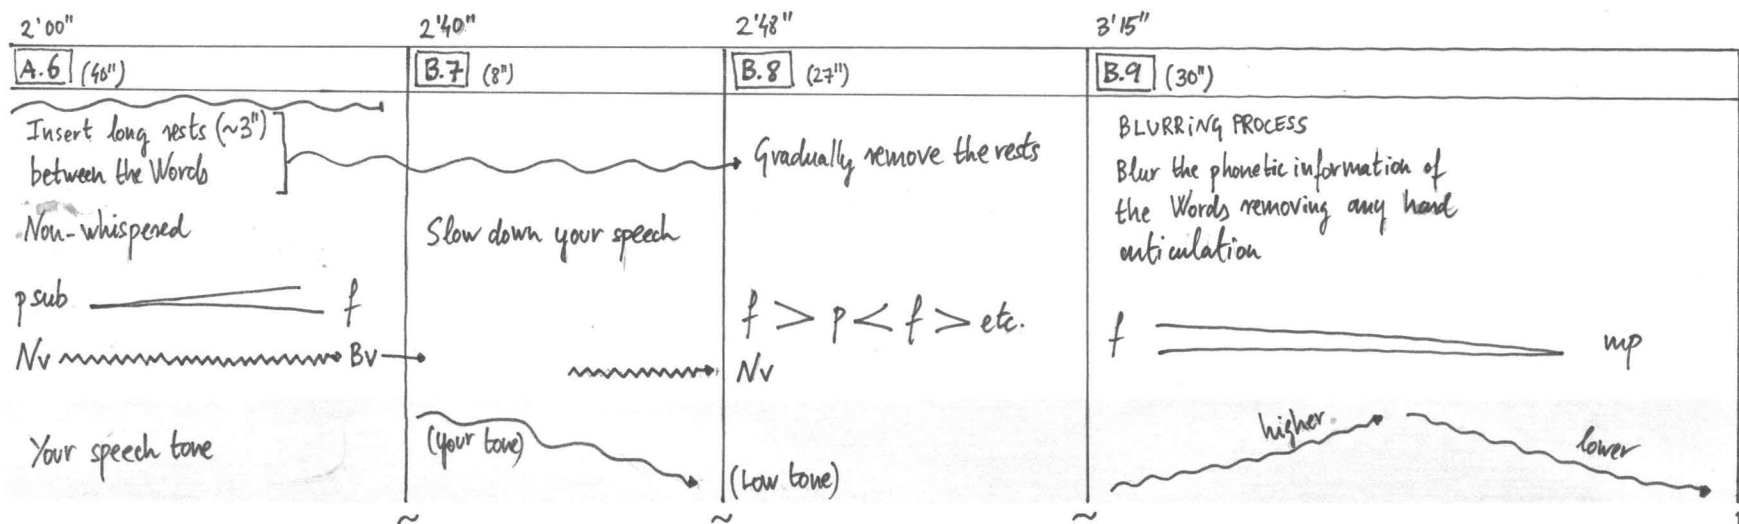 2'00" 2'40" 2'48" 3'15"
A.6 (40") B.7 (8") B.8 (27") B.9 (30")
Insert long rests (~3")
between the Words
Non-whispered
p sub f
Nv Bv
Your speech tone
Slow down your speech
(Your tone)
Gradually remove the rests
f > p < f > etc.
Nv
(Low tone)
BLURRING PROCESS
Blur the phonetic information of
the Words removing any hard
articulation
f mp
higher lower